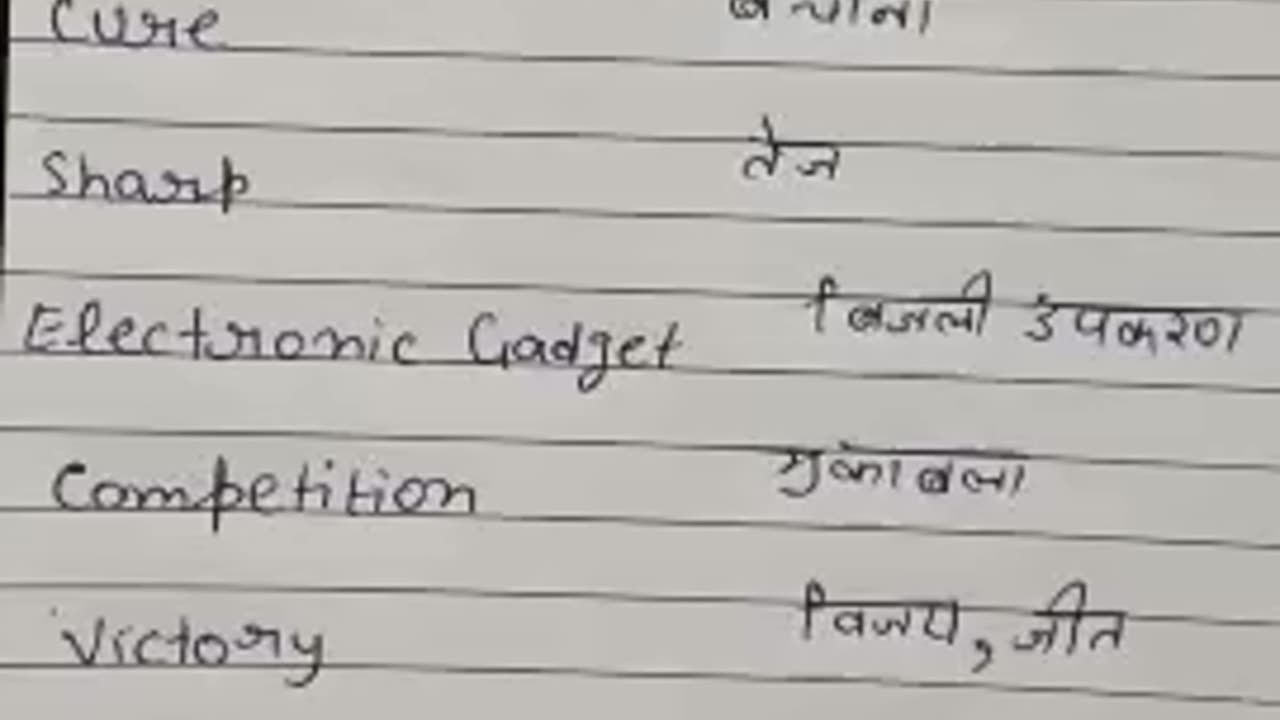 Cure बचाना
Sharp तेज
Electronic Gadget बिजली उपकरण
Competition मुकाबला
Victory विजय, जीत